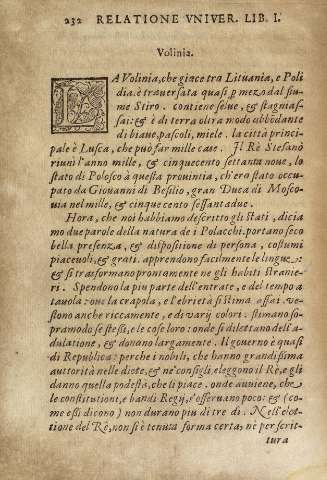 232 RELATIONE VNIVER. LIB. I.
Volinia.
LA Volinia, che giace tra Lituania, e Poli
dia. è trauersata quasi per mezo dal fiu-
me Stiro. contiene selue, & stagni as-
sai: & è di terra oltra modo abbōdante
di biaue, pascoli, miele. la città princi-
pale è Lusca, che può far mille case. Il Rè Stefanò
riunì l'anno mille, & cinquecento settanta noue, lo
stato di Polosco à questa prouintia, ch'era stato occu-
pato da Giouanni di Besilio, gran Duca di Mosco-
uia nel mille, & cinquecento sessantadue.
Hora, che noi habbiamo descritto gli stati, dicia
mo due parole della natura de i Polacchi. portano seco
bella presenza, & dispositione di persona, costumi
piaceuoli, & grati. apprendono facilmente le lingue:
& si trasformano prontamente ne gli habiti stranie-
ri. Spendono la piu parte dell'entrate, e del tempo a
tauola: one la crapola, e l'ebrietà si stima assai. ve-
stono anche riccamente, e di varij colori. stimano so-
pra modo se stessi, e le cose loro: onde si dilettano dell'a-
dulatione, & donano largamente. Il gouerno è quasi
di Republica: perche i nobili, che hanno grandissima
autorità nelle diete, & ne' consigli, eleggono il Rè, e gli
danno quella podestà, che li piace. onde auuiene, che
le constitutioni, e bandi Regij, s'osseruano poco: & (co-
me essi dicono) non durano piu di tre dì. Nell'elet-
tione del Rè, non si è tenuta forma certa, nè per scrit-
tura